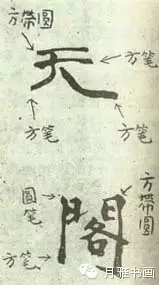 方带圆
天
方笔
方笔
方笔
圆笔
方带圆
閣
方笔
月雅书画